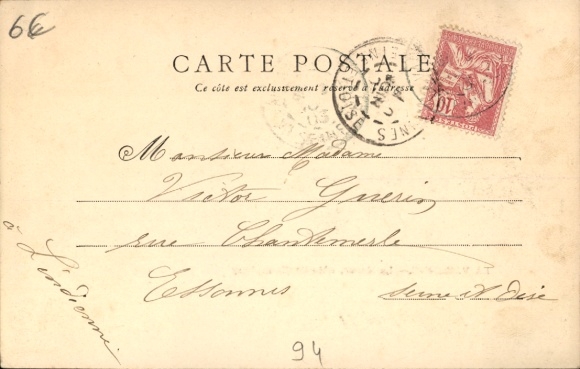 6€
CARTE POSTALE
Ce côté est exclusivement réservé à l'adresse
Monsieur Madame
Victor Guerin
rue Chantemerle
Essonnes Seine et Oise
à L'indienne
94
10